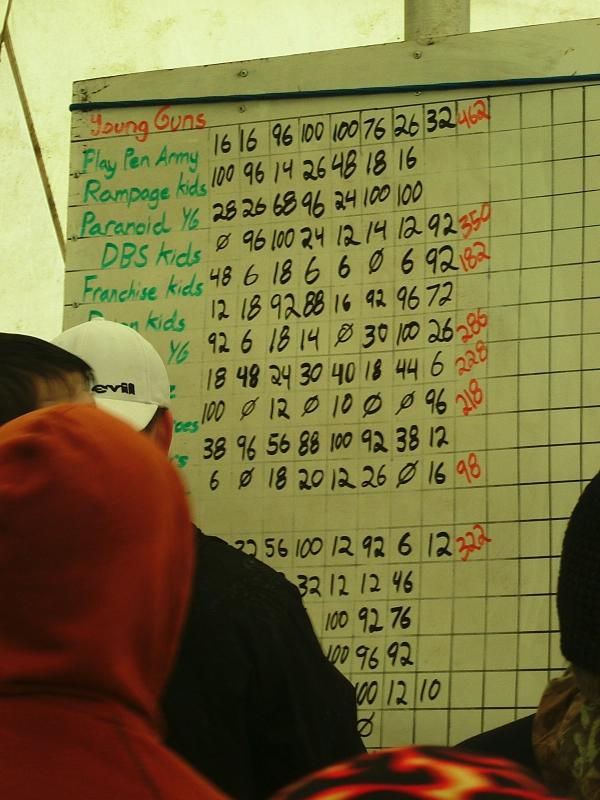 Young Guns 16 16 96 100 100 76 26 32 462
Play Pen Army 100 96 14 26 48 18 16
Rampage kids 28 26 68 96 24 100 100
Paranoid YG Ø 96 100 24 12 14 12 92 350
DBS kids 48 6 18 6 6 Ø 6 92 182
Franchise kids 12 18 92 88 16 92 96 72
kids 92 6 18 14 Ø 30 100 26 286
YG 18 48 24 30 40 18 44 6 228
100 Ø 12 Ø 10 Ø Ø 96 218
38 96 56 88 100 92 38 12
6 Ø 18 20 12 26 Ø 16 98
56 100 12 92 6 12 322
32 12 12 46
100 92 76
100 96 92
100 12 10
Ø
evil